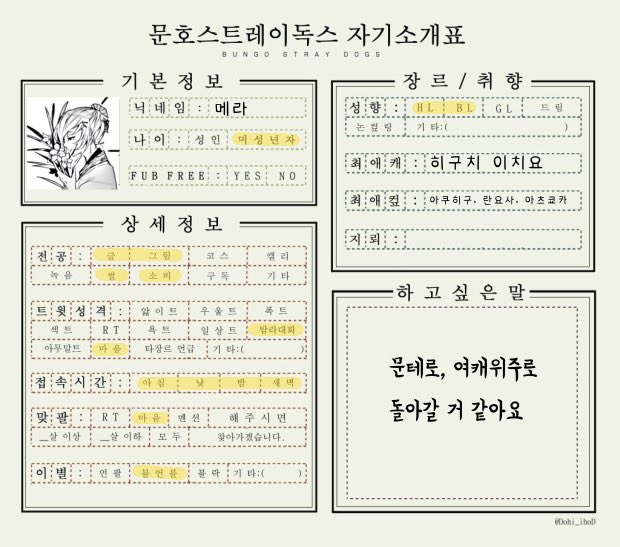 문호스트레이독스 자기소개표
BUNGO STRAY DOGS
기본정보
닉네임: 메라
나이: 성인 미성년자
FUB FREE: YES NO
상세정보
전공: 글 그림 코스 캘리
녹음 썰 소비 구독 기타
트윗성격: 앓이트 우울트 폭트
섹트 RT 욕트 일상트 탐라대화
아무말트 마음 타장르언급 기타:( )
접속시간: 아침 낮 밤 새벽
맞팔: RT 마음 멘션 해주시면
__살 이상 __살 이하 모두 찾아가겠습니다.
이별: 언팔 블언블 블락 기타:( )
장르/취향
성향: HL BL GL 드림
논컾링 기타:( )
최애캐: 히구치 이치요
최애컾: 아쿠히구, 란요사, 아츠쿄카
지뢰:
하고싶은말
문테로, 여캐위주로
돌아갈 거 같아요
@Dohi_ihoD